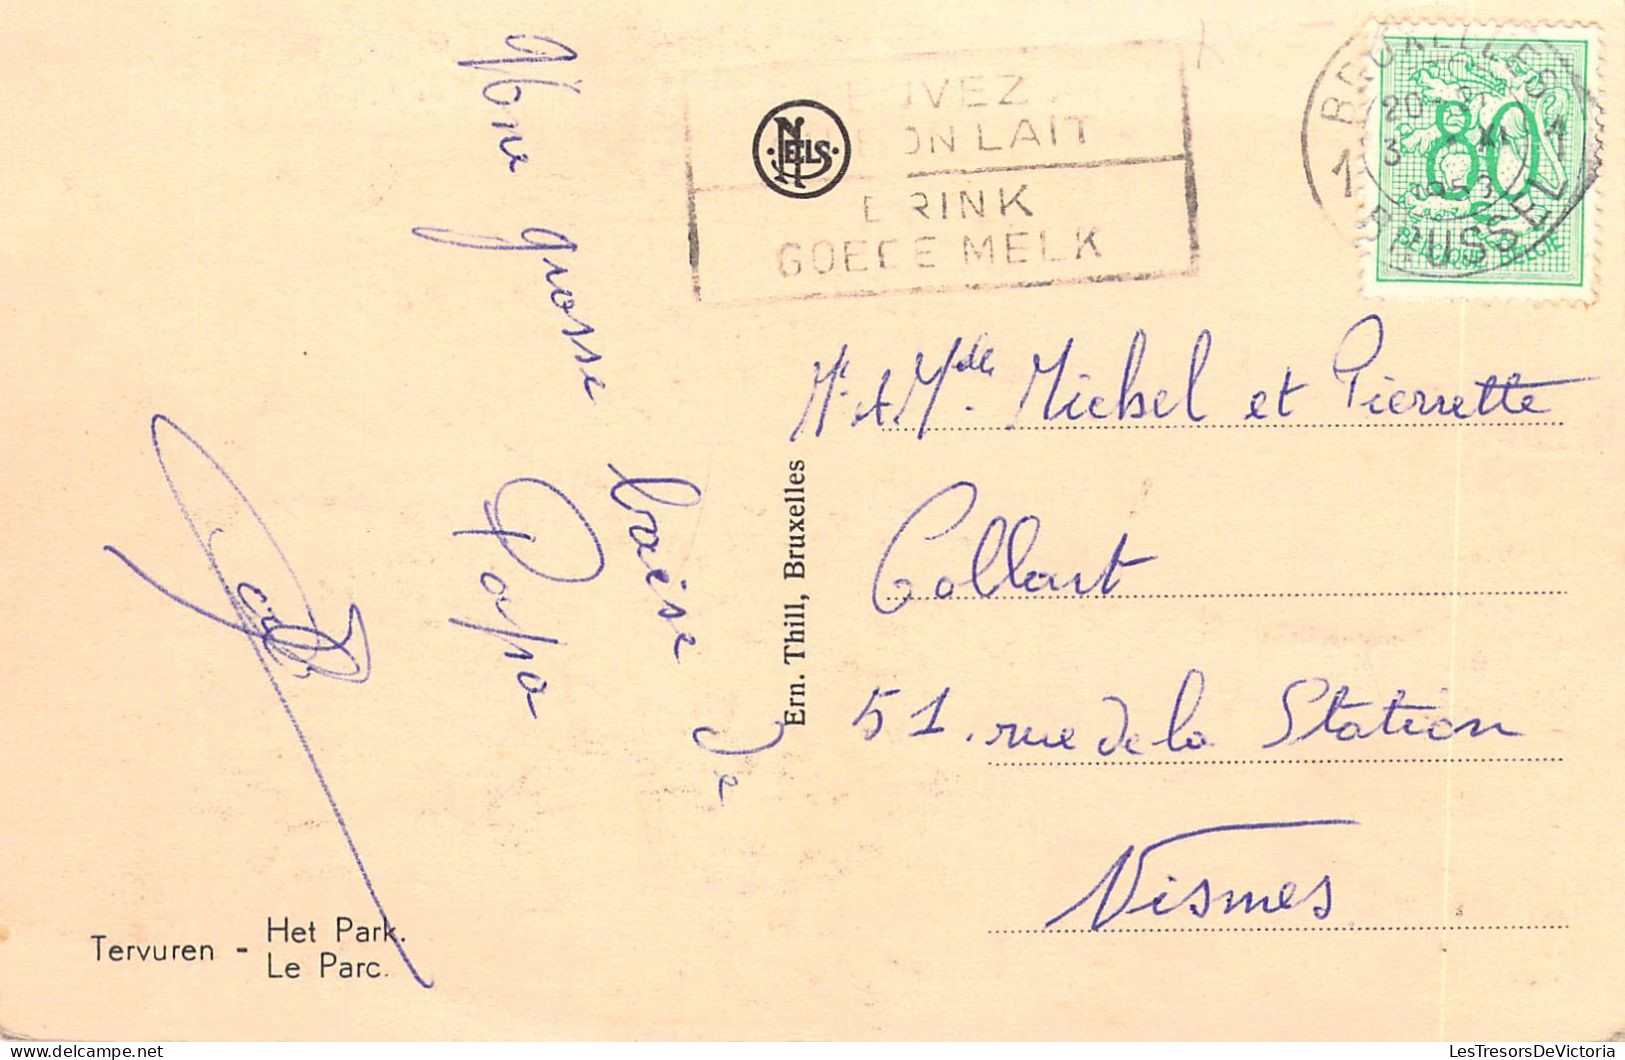 Une grosse
baise de
Papa
BUVEZ
DU BON LAIT
DRINK
GOEDE MELK
NELS
BRUXELLES
1 1
20
3 XI
1953
BRUSSEL
80
BELGIQUE BELGIE
Mr et Mdlle Michel et Pierrette
Collart
51. rue de la Station
Nismes
Ern. Thill, Bruxelles
Tervuren - Het Park.
Le Parc.
LesTresorsDeVictoria